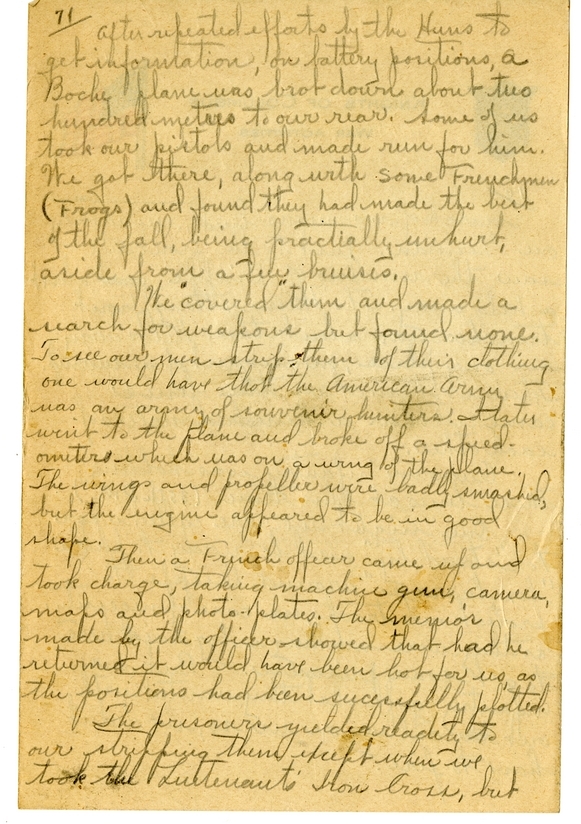 71
After repeated efforts by the Huns to
get information, on battery positions, a
Boche plane was brot down about two
hundred metres to our rear. Some of us
took our pistols and made run for him.
We got there, along with some Frenchmen
(Frogs) and found they had made the best
of the fall, being practially unhurt,
aside from a few bruises.
We "covered" them and made a
search for weapons but found none.
To see our men strip them of their clothing
one would have thot the American Army
was an army of souvenir hunters. I later
went to the plane and broke off a speed-
ometer which was on a wing of the plane.
The wings and propeller were badly smashed,
but the engine appeared to be in good
shape.
Then a French officer came up and
took charge, taking machine gun, camera,
maps and photo-plates. The memo's
made by the officer showed that had he
returned it would have been hot for us, as
the positions had been sucessfully plotted.
The prisoners yielded readily to
our stripping them except when we
took the Lieutenant's Iron Cross, but